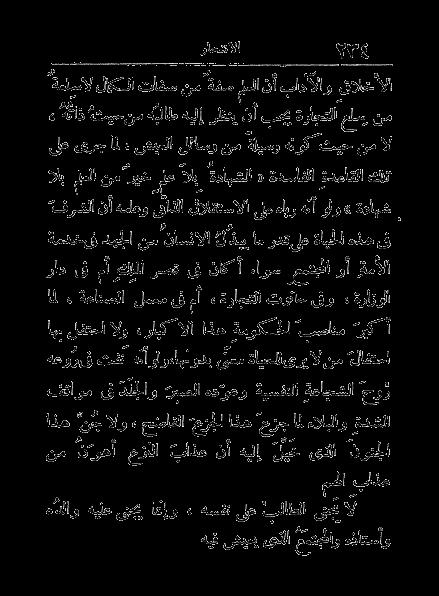 الانتحار ٢٣٤
الأخلاق والآداب أن العلم صفة من صفات الكمال لا سلعة
من سلع التجارة يجب أن ينظر إليه طالبه من حيث ذاته ،
لا من حيث كونه وسيلة من وسائل العيش : لما جرى على
تلك القاعدة الفاسدة « الشهادة بلا علم خير من العلم بلا
شهادة » ولو أنه رباه على الاستقلال الذاتي وعلمه أن الشرف
في هذه الحياة على قدر ما يبذل الانسان من الجهد في خدمة
الأمة أو المجتمع سواء أكان في قصر الملك أم في دار
الوزارة ، وفي حانوت التجارة ، أم في معمل الصناعة ، لما
أكبر مناصب الحكومة هذا الاكبار ، ولا احتفل بها
احتفال من لا يرى للحياة معنى بدونها، ولو أنه نفث في روعه
روح الشجاعة النفسية وعوده الصبر والجلد في مواقف
الشدة والبلاء لما جزع هذا الجزع الفاضح ، ولا جن هذا
الجنون الذي خيل إليه أن عذاب النزع أهون من
عذاب الهم
لا يجنى الطالب على نفسه ، وإنما يجنى عليه والده
وأستاذه والمجتمع الذي يعيش فيه